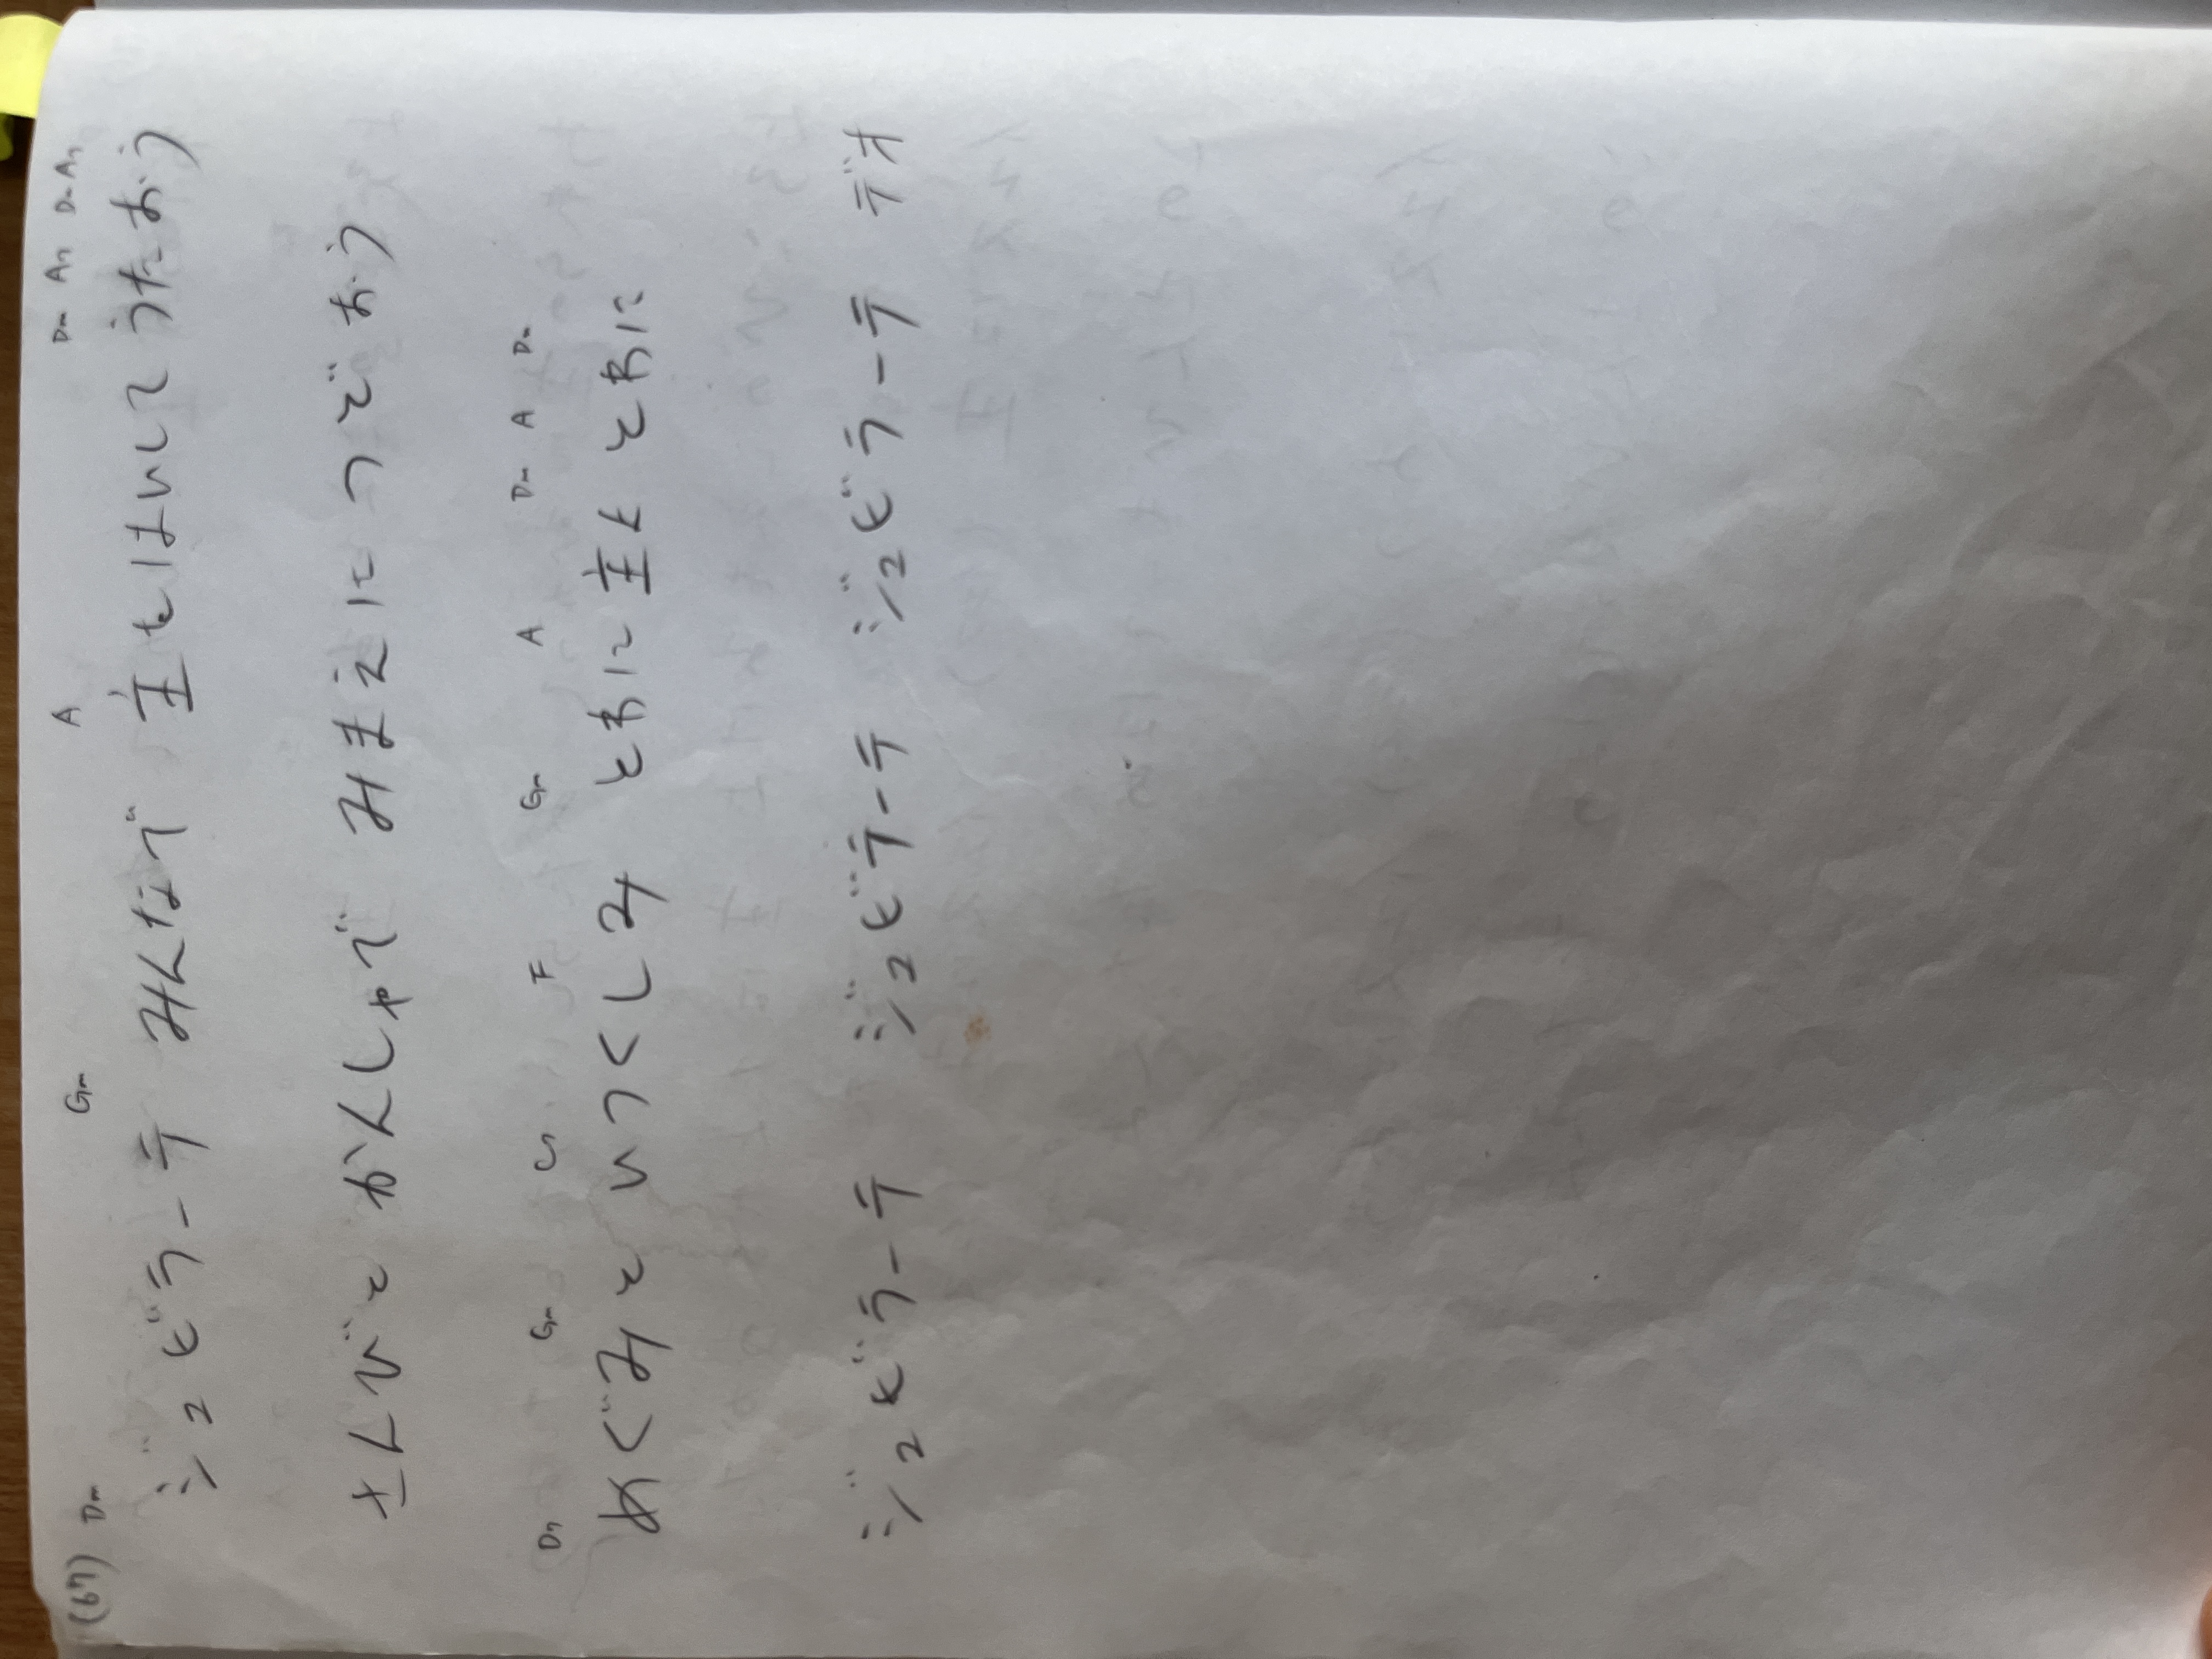 (67) Dm Gm A Dm A7 Dm A7
ジュビラーテ みんなで 主をはいして うたおう
さんびと かんしゃで みまえに つどおう
D7 Gm C7 F Gm A Dm A Dm
めぐみと いつくしみ ともに 主よ ともに
ジュビラーテ ジュビラーテ ジュビラーテ デオ